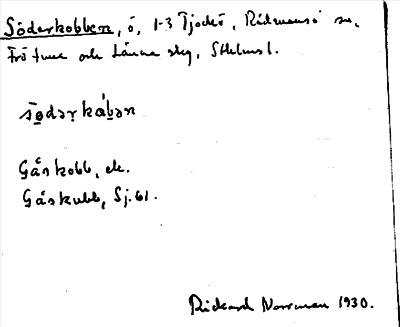 Söderkobben, ö, 1-3 Tjockö, Rådmansö sn,
Frötuna och Länna skg, Sthlms l.
sö̱dərkábən
Gåskobb, ek.
Gåskubb, Sj. 61.
Rickard Norrman 1930.